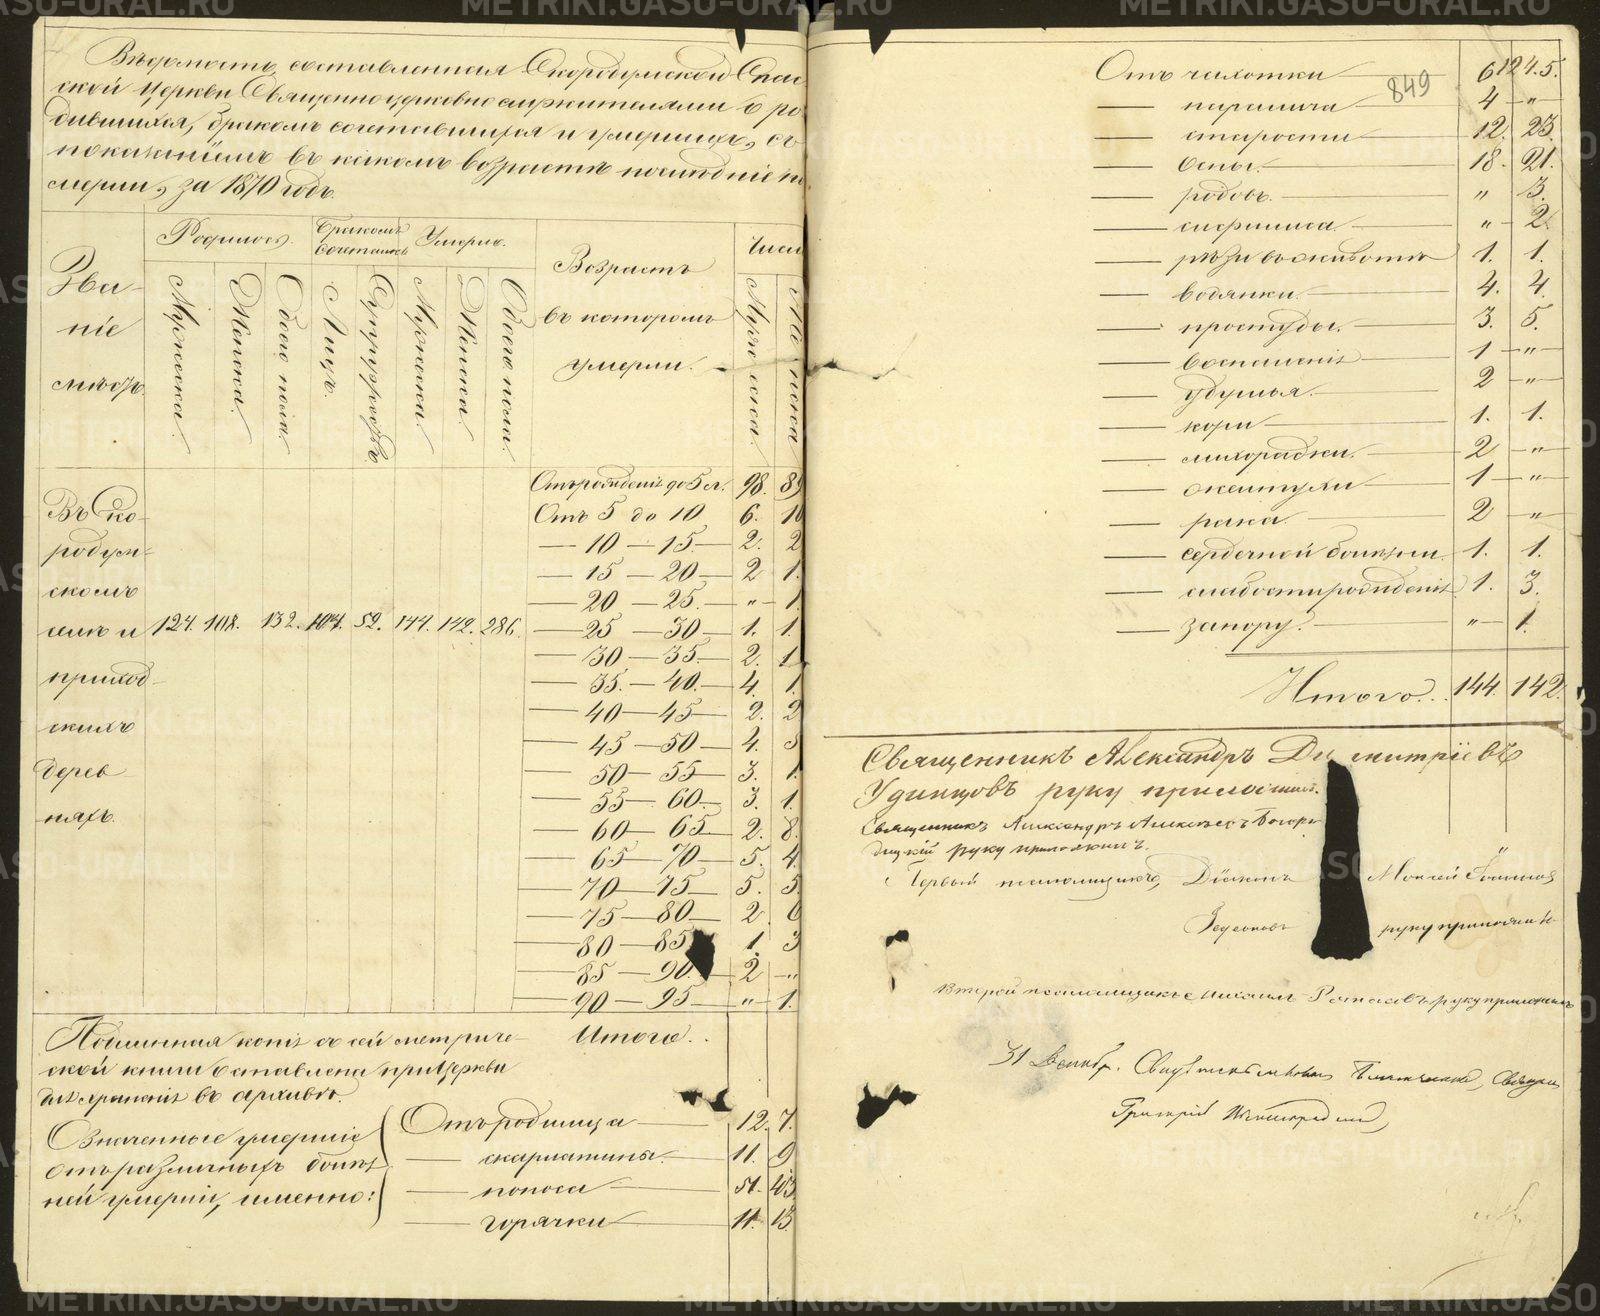 Вѣдомость, составленная Скородумской Спас
ской Церкви Священноцерковнослужителями о ро
дившихся, бракомъ сочетавшихся и умершихъ, съ
показаніемъ въ какомъ возрастѣ послѣдніе по
мерли, за 1870 годъ.
Зва-
ніе
мѣстъ.
Родилось.
Бракомъ
сочеталось
Умерло.
Возрастъ
въ которомъ
умерли.
Числ
Мужеска.
Женска.
Обоего пола.
Лицъ.
Супружествъ
Мужеска.
Женска.
Обоего пола.
Мужеска.
Женска
Въ Ско-
родум-
скомъ
селѣ и
приход-
скихъ
дерев
няхъ.
124. 108. 132. 104. 52. 144. 142. 286.
Отъ рожденія до 5 л. 98. 89
Отъ 5 до 10 6. 10
— 10 — 15 — 2. 2
— 15 — 20 — 2 1.
— 20 — 25. — „ — 1
— 25 — 30 — 1. 1.
— 30 — 35. — 2. 1
— 35. — 40. — 4. 1.
— 40 — 45 — 2. 2
— 45 — 50 — 4.
— 50 — 55 — 3. 1.
— 55 — 60. — 3. 1.
— 60 — 65 — 2. 8.
— 65 — 70 — 5. 4.
— 70 — 75 — 5. 5.
— 75 — 80 — 2. 6
— 80 — 85 1. 3
— 85 — 90. 2 — „
— 90 — 95 — „ — 1.
Итого..
Подлинная копія съ сей метриче-
ской книги оставлена при Церкви
для храненія въ архивѣ.
Означенные умершіе
отъ различныхъ болѣз
ней умерли, именно:
Отъ родимца — 12. 7.
— скарлатины — 11. 9
— поноса — 51. 43
— горячки — 11. 13
849
Отъ чахотки — 6 124.5.
— паралича — 4 — „ —
— старости — 12. 23.
— оспы. — 18. 21.
— родовъ. — „ 3.
— сифилиса — „ — 2.
— рѣзи въ животѣ 1. 1.
— водянки. — 4. 4
— простуды. — 3. 5.
— воспаленія — 1 — „ —
— удушья. — 2 — „ —
— кори — 1. 1.
— лихорадки. — 2 — „ —
— 1 — „ —
— рака — 2 — „
— сердечной болѣзни. 1. 1.
— слабости рожденія 1. 3.
— запору. — „ — 1.
Итого.. 144. 142.
Священникъ Александръ Димитріевъ
Удинцовъ руку приложилъ.
Священникъ Александръ Алексѣевъ Богоро
дицкій руку приложилъ.
Первый псаломщикъ, Діаконъ Моисей Іоанновъ
руку приложилъ
Второй псаломщикъ Михаилъ руку приложилъ
31 Декабр.
Григорій
METRIKI.GASU-URAL.RU